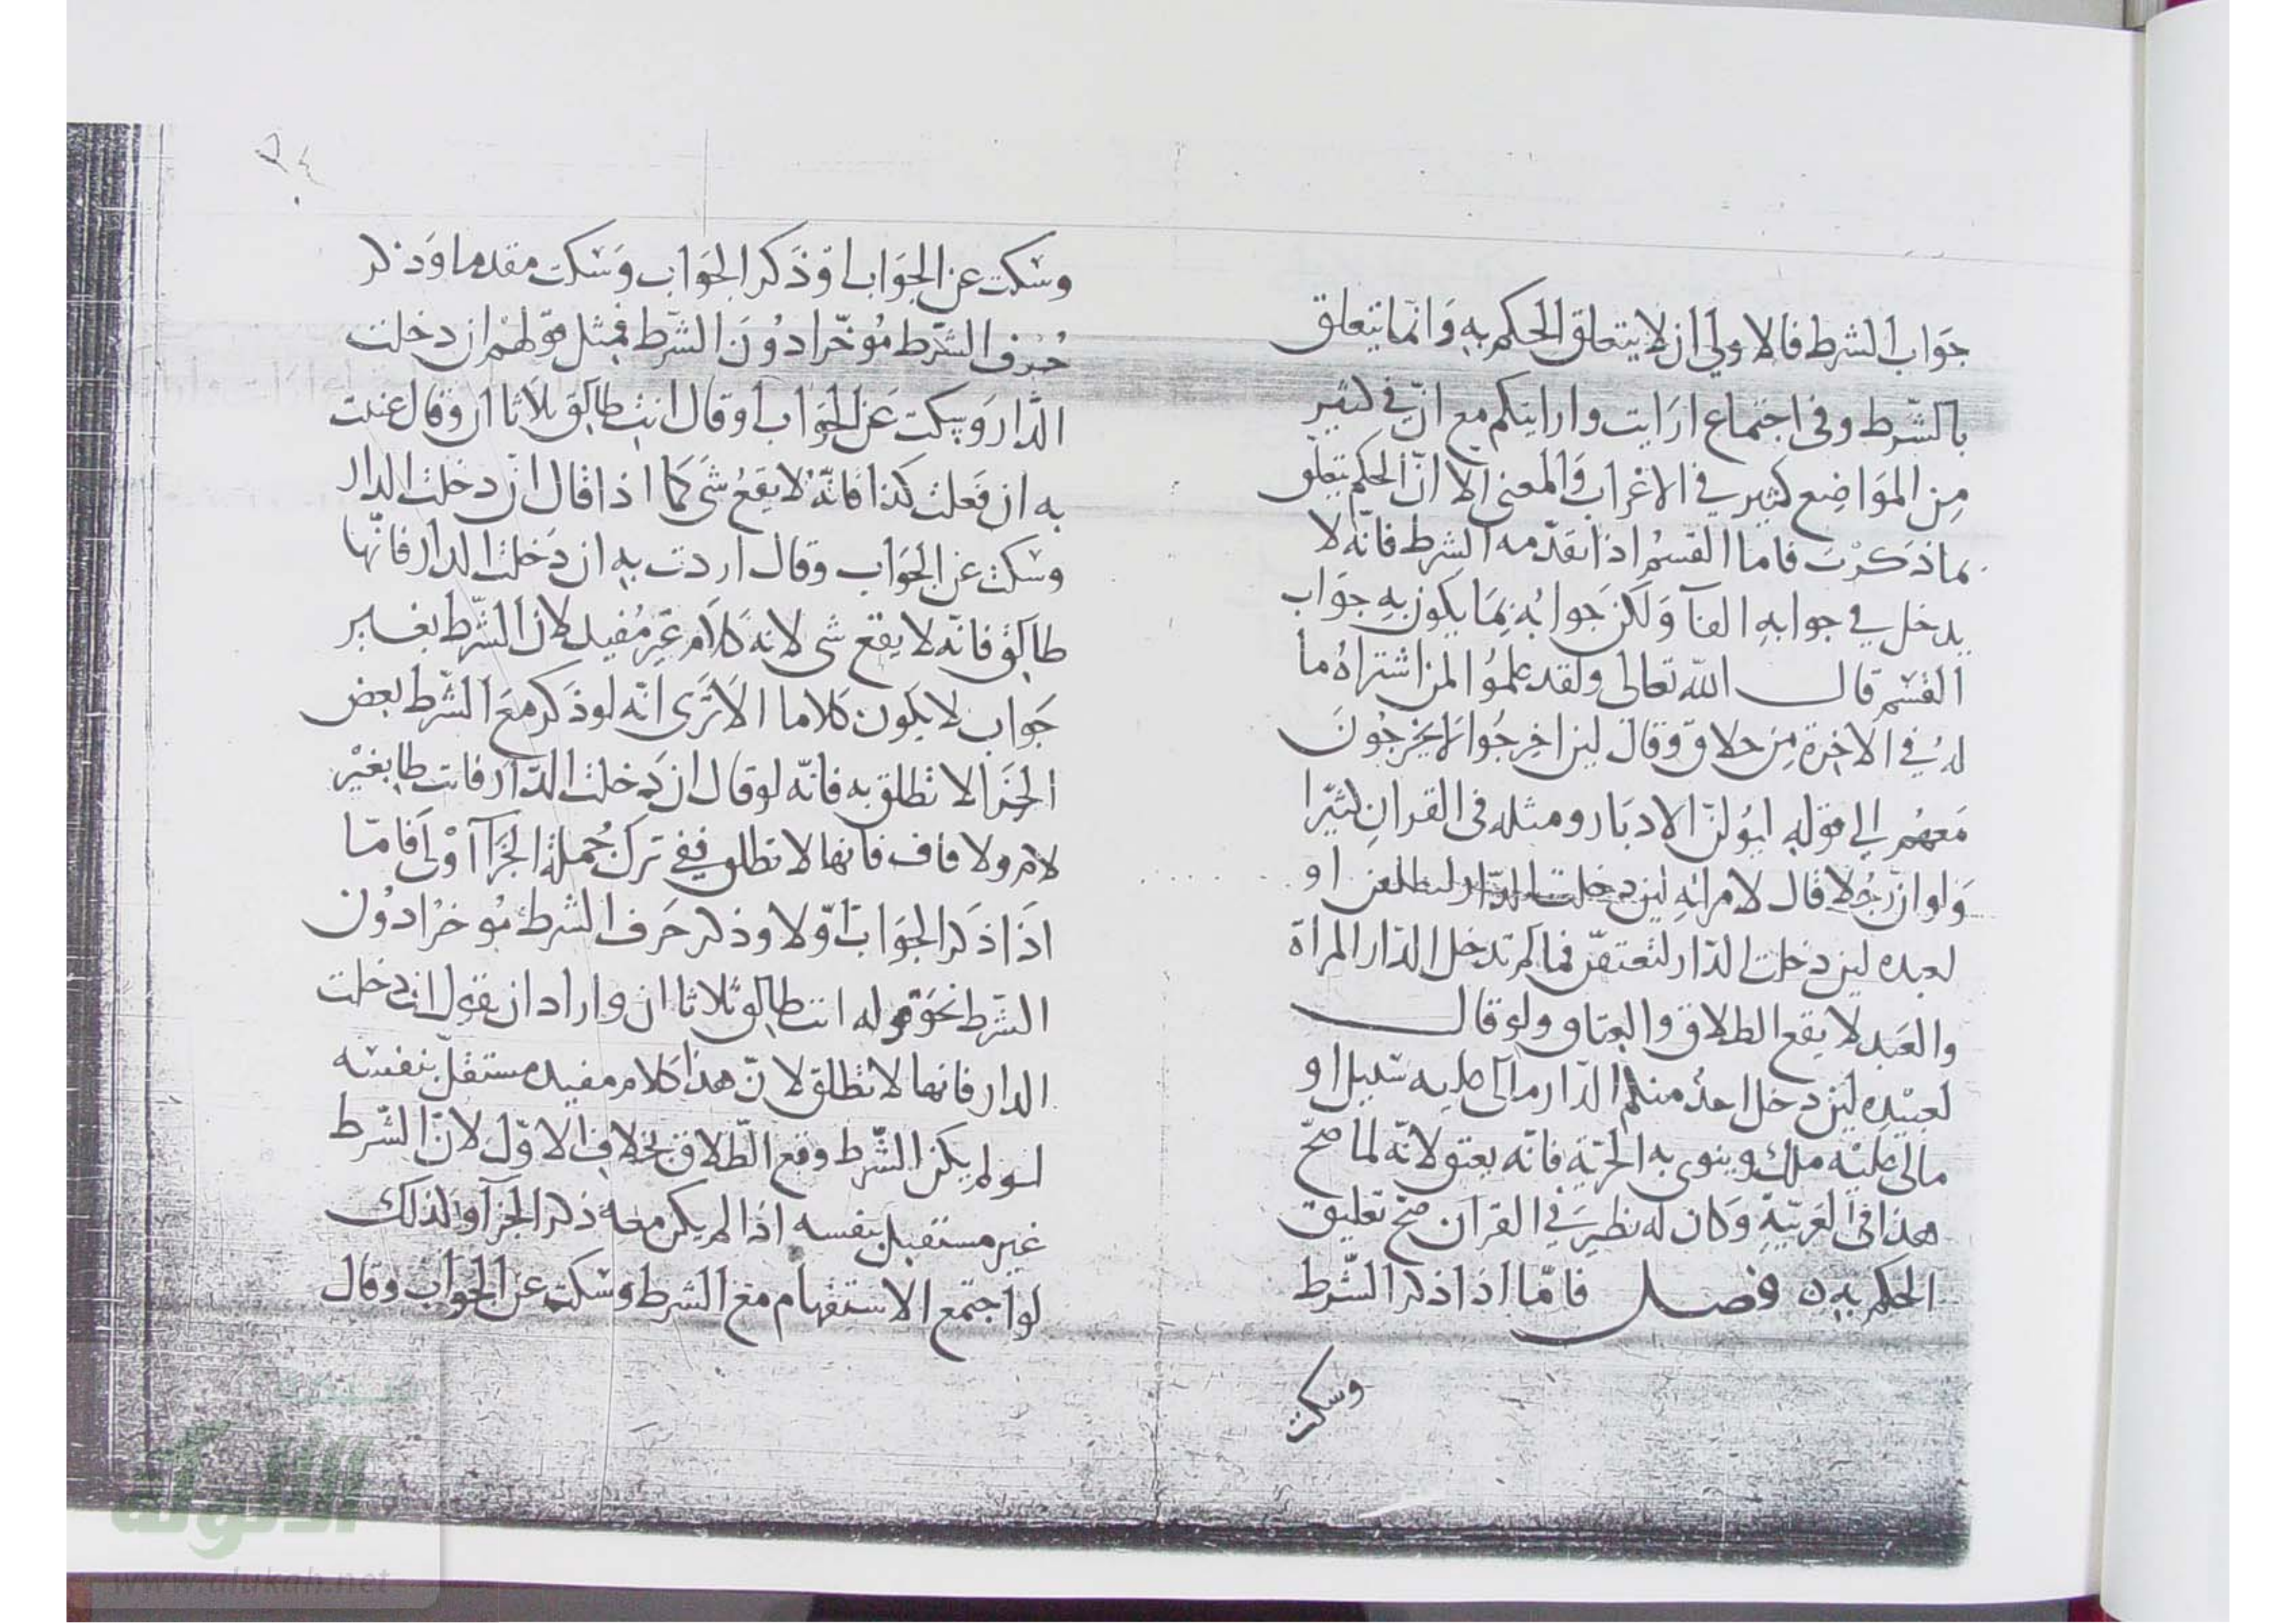 جَوَاب الشرط فالاولي ان لا يتعلق الحكم بهِ وَانّما يتعلق
بالشّرط وفى اجتماع ارَايت وارايتكم مع انّ في كثيرٍ
مِن المَوَاضِع كثير في الاعْراب وَالمعنى الا انّ الحكم يتعلق
بماذَكرْتَ فاما القسمُ اذا تقدّمه الشرط فانّه لا
يدخل في جوابهِ الفآ وَلكن جوابُه بِمَا يكون بهِ جوَاب
القسَم قال الله تعالى ولقد علموُا لمن اشتراهُ ما
لهُ في الاخِرة مِن خلاقٍ وقال لين اخرجُوا لا يخرجُونَ
مَعهُم الي قوله ليُولنّ الادبَار ومثله فى القرانِ كثيرا
وَلو انّ رجُلا قال لامراتهِ لين دخلت الدّار لتطلقن او
لعبده لين دخلت الدّار لتعتقنّ فما لم تدخل الدّار المراة
والعَبد لا يقع الطلاق والعتاق ولو قال
لعبيْدِه لين دخل احدٌ منكم الدّار مالى عليه سَبيل او
مالى عليْه ملك وينوى به الحرّية فانّه يعتق لانّه لما صحّ
هذا فى العَربيّةِ وَكان له نظيرَ في القرآن صَحّ تعليق
الحكم بهِ ه فصل فامّا اذا ذكر الشّرط
وسكت
٢٤
وسَكت عن الجوَاب اوْ ذَكر الجوَاب وَسَكت مقدما وَذكر
حُرف الشّرط مُوخّرا دُونَ الشّرط فمِثل قوْلهمْ ان دخلت
الدّار وَسكت عَن الجَوَاب او قال انتِ طالِق ثلاثا ان وقال عنيت
به ان فَعلت كذا فانّه لا يقعُ شى كمَا اذا قال ان دَخلت الدار
وسَكت عن الجَوَاب وقال اردت بهِ ان دَخلت الدار فانّها
طالِق فانّه لا يقع شى لانه كلَام غيرُ مُفيد لانّ الشّرط بغير
جَواب لا يكَون كلاما الا تَرَى انّه لو ذَكر معَ الشّرط بعض
الجَزا لا تطلق به فانّه لو قال ان دَخلت الدّار فانت طا بغيْر
لام ولا قاف فانها لا تطلق ففى ترك جُملة الجَزآ اوْلَى فامّا
اذَا ذَكر الجَوَابَ اوّلا وذكر حَرف الشرط مُوخرْا دوُن
الشّرط نحو قوله انت طالِق ثلاثا ان واراد ان يقول ان دخلت
الدار فانها لا تطلق لانّ هذا كلام مفيد مستقلّ بنفسه
لو لم يكن الشّرط وقع الطّلاق بخلافِ الاوّل لانّ الشّرط
غير مستقبل بنفسه اذا لم يكن معه ذكر الجزآ وكذلك
لو اجتمع الاستفهام مع الشرط وسَكت عن الجوَاب وقال
الألوكة
www.alukah.net